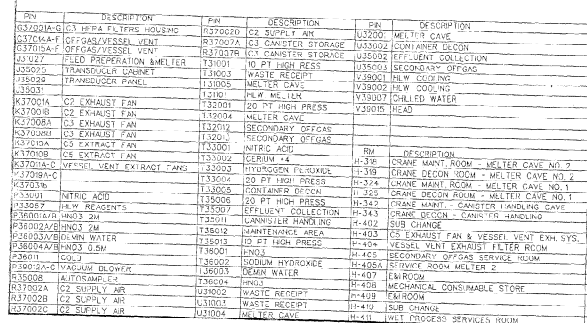 PIN DESCRIPTION
G37001A-G C3 HEPA FILTERS HOUSING
G37014A-F OFFGAS/VESSEL VENT
G37015A-F OFFGAS/VESSEL VENT
J31027 FEED PREPERATION &MELTER
J35025 TRANSDUCER CABINET
J35029 TRANSDUCER PANEL
J35031
K37001A C2 EXHAUST FAN
K37001B C2 EXHAUST FAN
K37008A C3 EXHAUST FAN
K37008B C3 EXHAUST FAN
K37010A C5 EXTRACT FAN
K37010B C5 EXTRACT FAN
K37011A-D VESSEL VENT EXTRACT FANS
K37019A-C
K37031B
P33001 NITRIC ACID
P33067 HLW REAGENTS
P36001A/B HNO3 2M
P36002A/B HNO3 2M
P36003A/B DEMIN WATER
P36004A/B HNO3 0.5M
P36011 COLD
P39002A-C VACUUM BLOWER
R35008 AUTOSAMPLER
R37002A C2 SUPPLY AIR
R37002B C2 SUPPLY AIR
R37002C C2 SUPPLY AIR
PIN DESCRIPTION
R37002D C2 SUPPLY AIR
R37007A C3 CANISTER STORAGE
R37007B C3 CANISTER STORAGE
T31001 10 PT HIGH RESS
T31003 WASTE RECEIPT
T31005 MELTER CAVE
T31101 HLW MELTER
T32001 20 PT HIGH PRESS
T32004 MELTER CAVE
T32012 SECONDARY OFFGAS
T32013 SECONDARY OFFGAS
T33001 NITRIC ACID
T33002 CERIUM +4
T33003 HYDROGEN PEROXIDE
T33004 20 PT HIGH PRESS
T33005 CONTAINER DECON
T35006 20 PT HIGH PRESS
T35007 EFFLUENT COLLECTION
T35011 CANNISTER HANDLING
T35012 MAINTENANCE AREA
T35013 10 PT HIGH PRESS
T36001 HNO3
T36002 SODIUM HYDROXIDE
T36003 DEMIN WATER
T36004 HNO3
U31002 WASTE RECEIPT
U31003 WASTE RECEIPT
U31004 MELTER CAVE
PIN DESCRIPTION
U32001 MELTER CAVE
U33002 CONTAINER DECON
U35002 EFFLUENT COLLECTION
U35003 SECONDARY OFFGAS
V39001 HLW COOLING
V39002 HLW COOLING
V39007 CHILLED WATER
V39015 HEAD
RM DESCRIPTION
H-318 CRANE MAINT. ROOM - MELTER CAVE NO. 2
H-319 CRANE DECON ROOM - MELTER CAVE NO. 2
H-324 CRANE MAINT. ROOM - MELTER CAVE NO. 1
H-325 CRANE DECON ROOM - MELTER CAVE NO. 1
H-342 CRANE MAINT. - CANISTER HANDLING CAVE
H-343 CRANE DECON - CANISTER HANDLING
H-402 SUB CHANGE
H-403 C5 EXHAUST FAN & VESSEL VENT EXH. SYS.
H-404 VESSEL VENT EXHAUST FILTER ROOM
H-405 SECONDARY OFFGAS SERVICE ROOM
H-405A SERVICE ROOM MELTER 2
H-407 E&I ROOM
H-408 MECHANICAL CONSUMABLE STORE
H-409 E&I ROOM
H-410 SUB CHANGE
H-411 WET PROCESS SERVICES ROOM